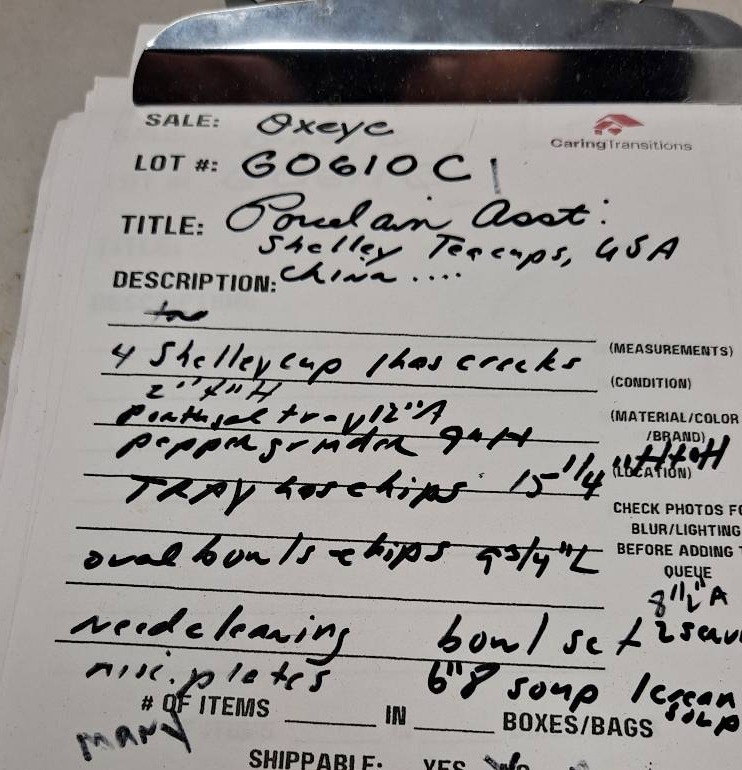 SALE: Oxeye
CaringTransitions
LOT #: G0610C1
TITLE: Porcelain Asst:
Shelley Teacups, USA
DESCRIPTION: China ....
4 Shelley cup 1 has cracks
(MEASUREMENTS)
2" 4" H
(CONDITION)
Portugal tray 12" A
(MATERIAL/COLOR
/BRAND)
pepper grinder 9" H
(LOCATION)
TRAY has chips 15 1/4"
CHECK PHOTOS FO
BLUR/LIGHTING
BEFORE ADDING T
QUEUE
oval bowls chips 9 3/4" L
8 1/2" A
Need cleaning bowl set 2 serv
misc. plates 6" 8 soup 1 cream
soup
# OF ITEMS IN BOXES/BAGS
many
SHIPPABLE: YES